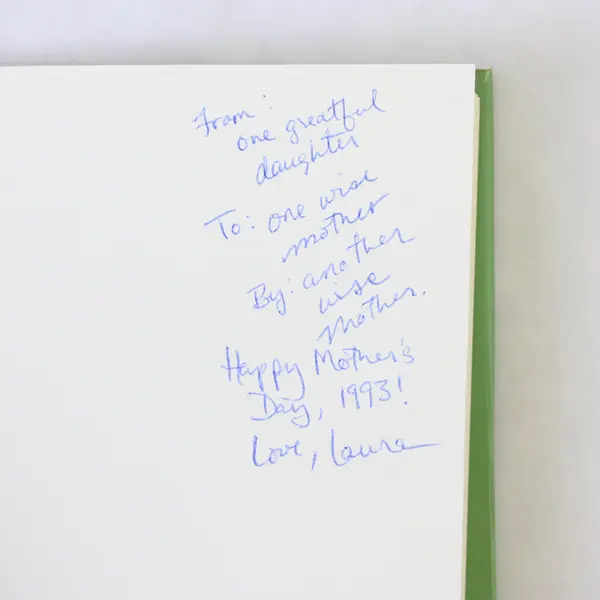 From:
one greatful
daughter
To: one wise
mother
By: another
wise
mother.
Happy Mother's
Day, 1993!
Love, Laura